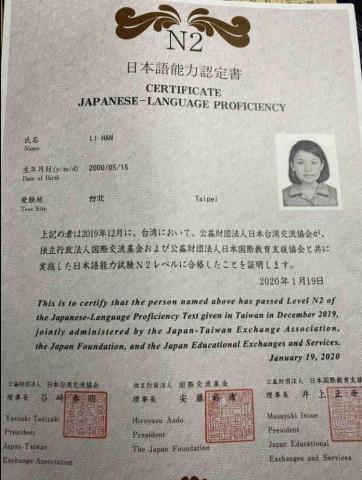 N2
日本語能力認定書
CERTIFICATE
JAPANESE-LANGUAGE PROFICIENCY
氏名 LI HAN
Name
生年月日(y/m/d) 2000/05/15
Date of Birth
受験地 台北 Taipei
Test Site
上記の者は2019年12月に、台湾において、公益財団法人日本台湾交流協会が、
独立行政法人国際交流基金および公益財団法人日本国際教育支援協会と共に
実施した日本語能力試験N2レベルに合格したことを証明します。
2020年1月19日
This is to certify that the person named above has passed Level N2 of
the Japanese-Language Proficiency Test given in Taiwan in December 2019,
jointly administered by the Japan-Taiwan Exchange Association,
the Japan Foundation, and the Japan Educational Exchanges and Services.
January 19, 2020
公益財団法人 日本台湾交流協会
理事長 谷崎泰明
Yasuaki Tanizaki
President
Japan-Taiwan
Exchange Association
独立行政法人 国際交流基金
理事長 安藤裕康
Hiroyasu Ando
President
The Japan Foundation
公益財団法人 日本国際教育支援
理事長 井上正幸
Masayuki Inoue
President
Japan Educational
Exchanges and Services